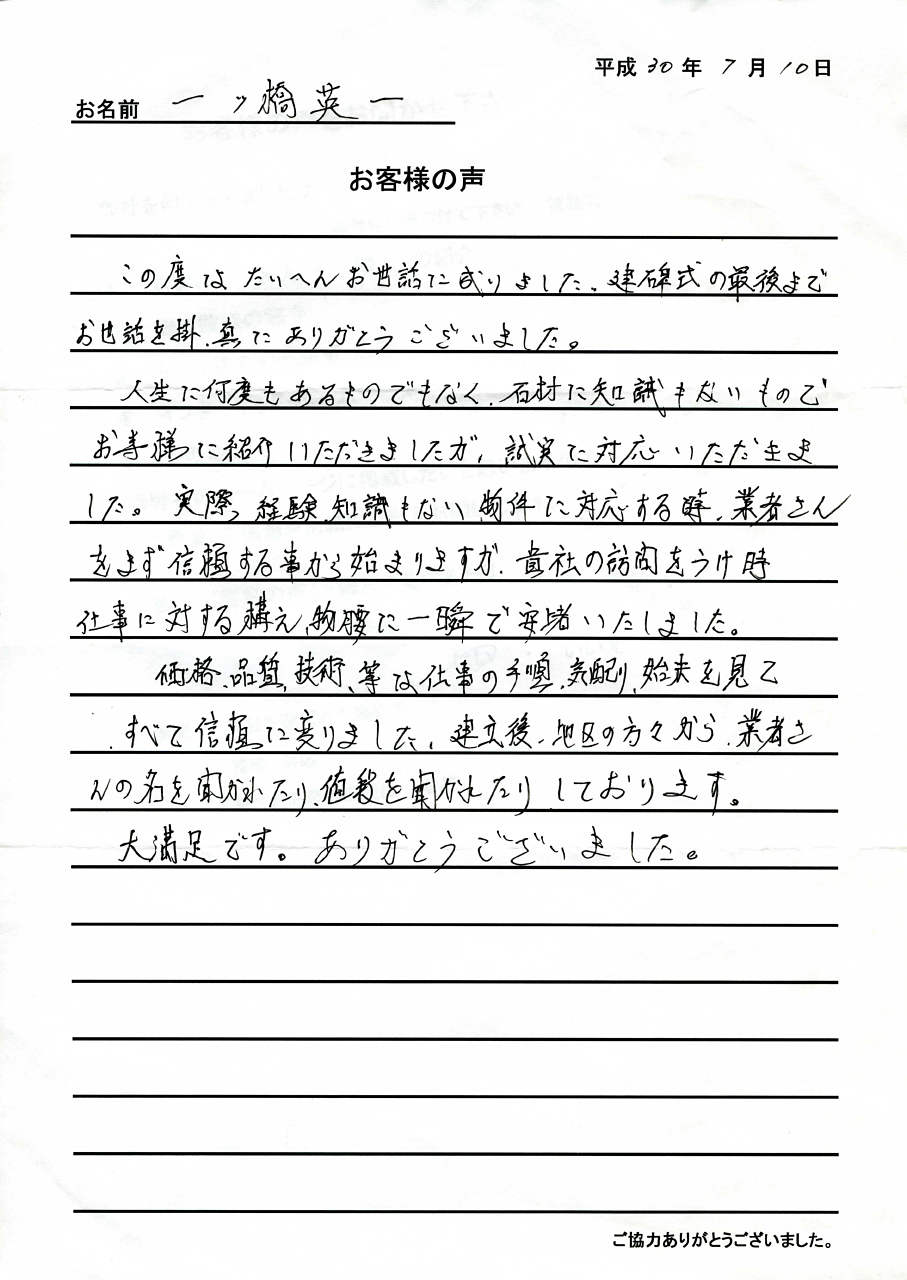 平成 30 年 7 月 10 日
お名前 一ッ橋英一
お客様の声
この度はたいへんお世話に成りました、建碑式の最後まで
お世話を掛、真にありがとうございました。
人生に何度もあるものでもなく、石材に知識もないもので
お寺様に紹介いただきましたが、誠実に対応いただきま
した。実際、経験、知識もない物件に対応する時、業者さん
をまず信頼する事から始まりますが、貴社の訪問をうけ時
仕事に対する構え、物腰に一瞬で安堵いたしました。
価格、品質、技術、等は仕事の手順、気配り、始末を見て
すべて信頼に変りました、建立後、地区の方々から、業者さ
んの名を聞かれたり、値段を聞かれたりしております。
大満足です。ありがとうございました。
ご協力ありがとうございました。